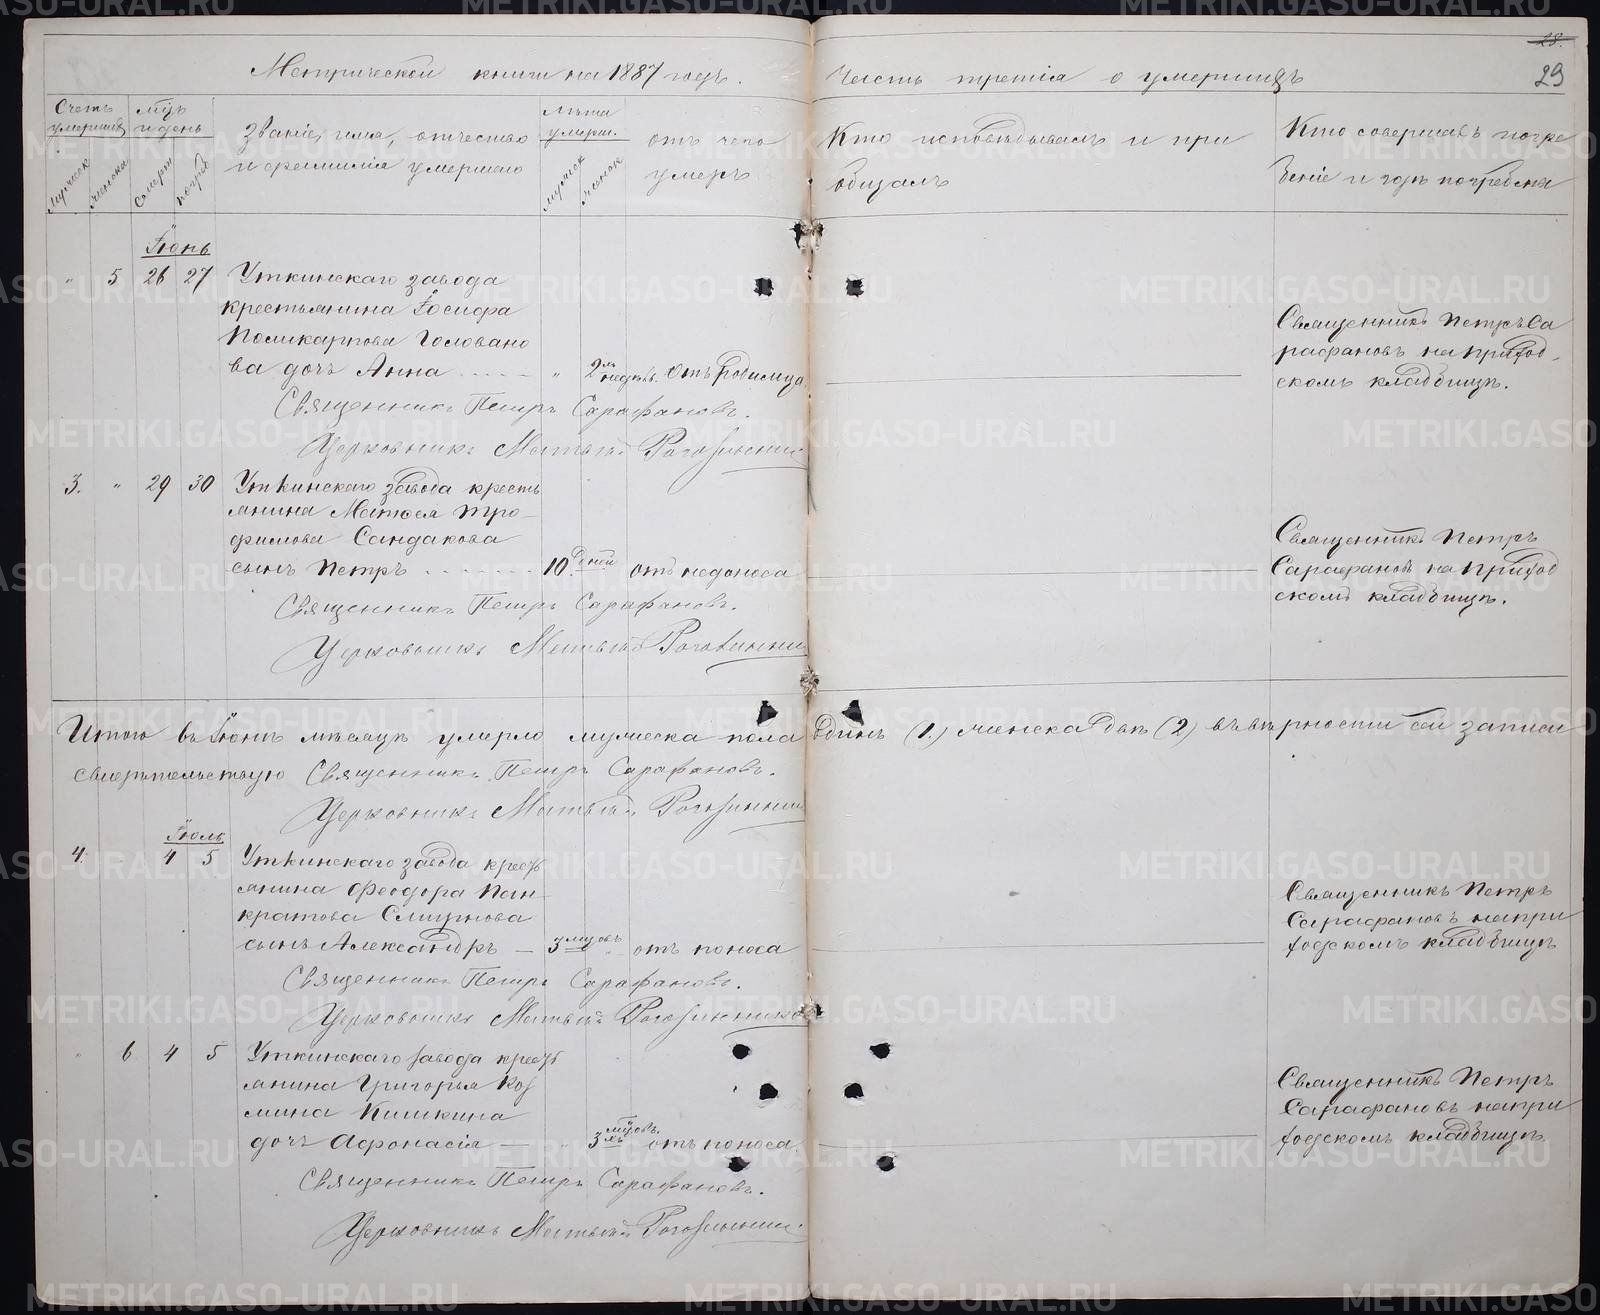 Метрической книги на 1887 годъ.
Часть третія о умершихъ
28.
29
Счетъ умершихъ
мужеск
женска
Мѣс. и день
смерти
погреб
Званіе, имя, отчество
и фамилія умершаго
Лѣта умерш.
мужск
женск
отъ чего
умеръ
Кто исповѣдывалъ и при
общалъ
Кто совершалъ погре
беніе и гдѣ погребены
Іюнь
" 5 26 27 Уткинскаго завода
крестьянина Іосифа
Поликарпова Головано
ва дочь Анна " 2хъ недѣль. отъ родимца
Священникъ Петръ Са
рафановъ на приход
скомъ кладбищѣ.
Священникъ Петръ Сарафановъ.
Церковникъ Матвѣй
3. " 29 30 Уткинскаго завода кресть
янина Матѳея Тро-
фимова Сандакова
сынъ Петръ 10 дней отъ недоноса
Священникъ Петръ
Сарафановъ на приход
скомъ кладбищѣ.
Священникъ Петръ Сарафановъ.
Церковникъ Матвѣй
Итого въ Іюнѣ мѣсяцѣ умерло мужеска пола одинъ (1.) женска двѣ (2) въ вѣрности сей записи
свидѣтельствую Священникъ Петръ Сарафановъ.
Церковникъ Матвѣй
Іюль
4. " 4 5 Уткинскаго завода крест
янина Ѳеодора Пан
кратова Смирнова
сынъ Александръ — 3 мцовъ отъ поноса
Священникъ Петръ
Сарафановъ на при
ходскомъ кладбищѣ
Священникъ Петръ Сарафановъ.
Церковникъ Матвѣй
" 6 4 5 Уткинскаго завода крест
янина Григорья Коз
мина Кишкина
дочь Афонасія — " 3хъ мцовъ. отъ поноса.
Священникъ Петръ
Сарафановъ на при
ходскомъ кладбищѣ.
Священникъ Петръ Сарафановъ.
Церковникъ Матвѣй
METRIKI.GASO-URAL.RU